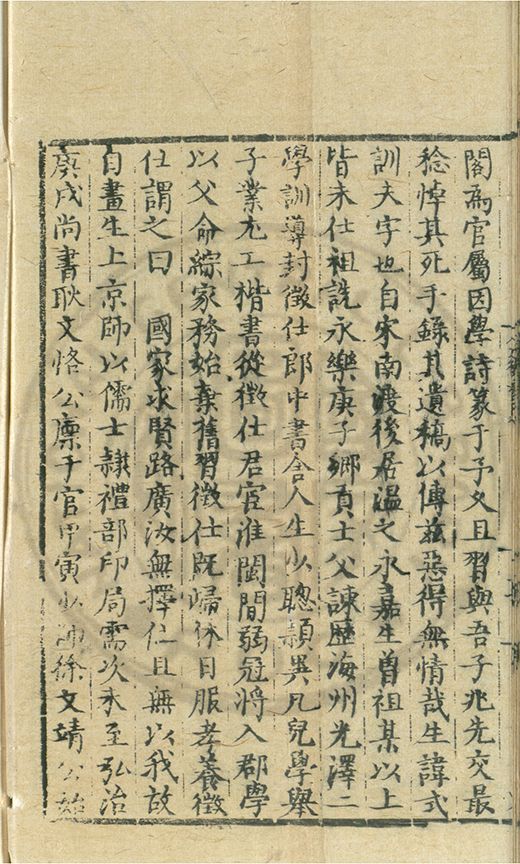 閣為官屬因學詩篆于予父且習與吾子兆先交最
稔悼其死手錄其遺稿以傳茲惡得無情哉生諱式
訓夫字也自宋南渡後居溫之永嘉生曾祖某以上
皆未仕祖詵永樂庚子鄉貢士父諫歷海州光澤二
學訓導封徵仕郎中書舍人生少聰穎異凡兒學舉
子業尤工楷書從徵仕君官淮閩間弱冠將入郡學
以父命綜家務始棄舊習徵仕既歸休日服老養徵
仕謂之曰 國家求賢路廣汝無擇仕且無以我故
自畫生上京師以儒士隸禮部印局需次未至弘治
庚戌尚書耿文恪公廩于官甲寅少師徐文靖公始